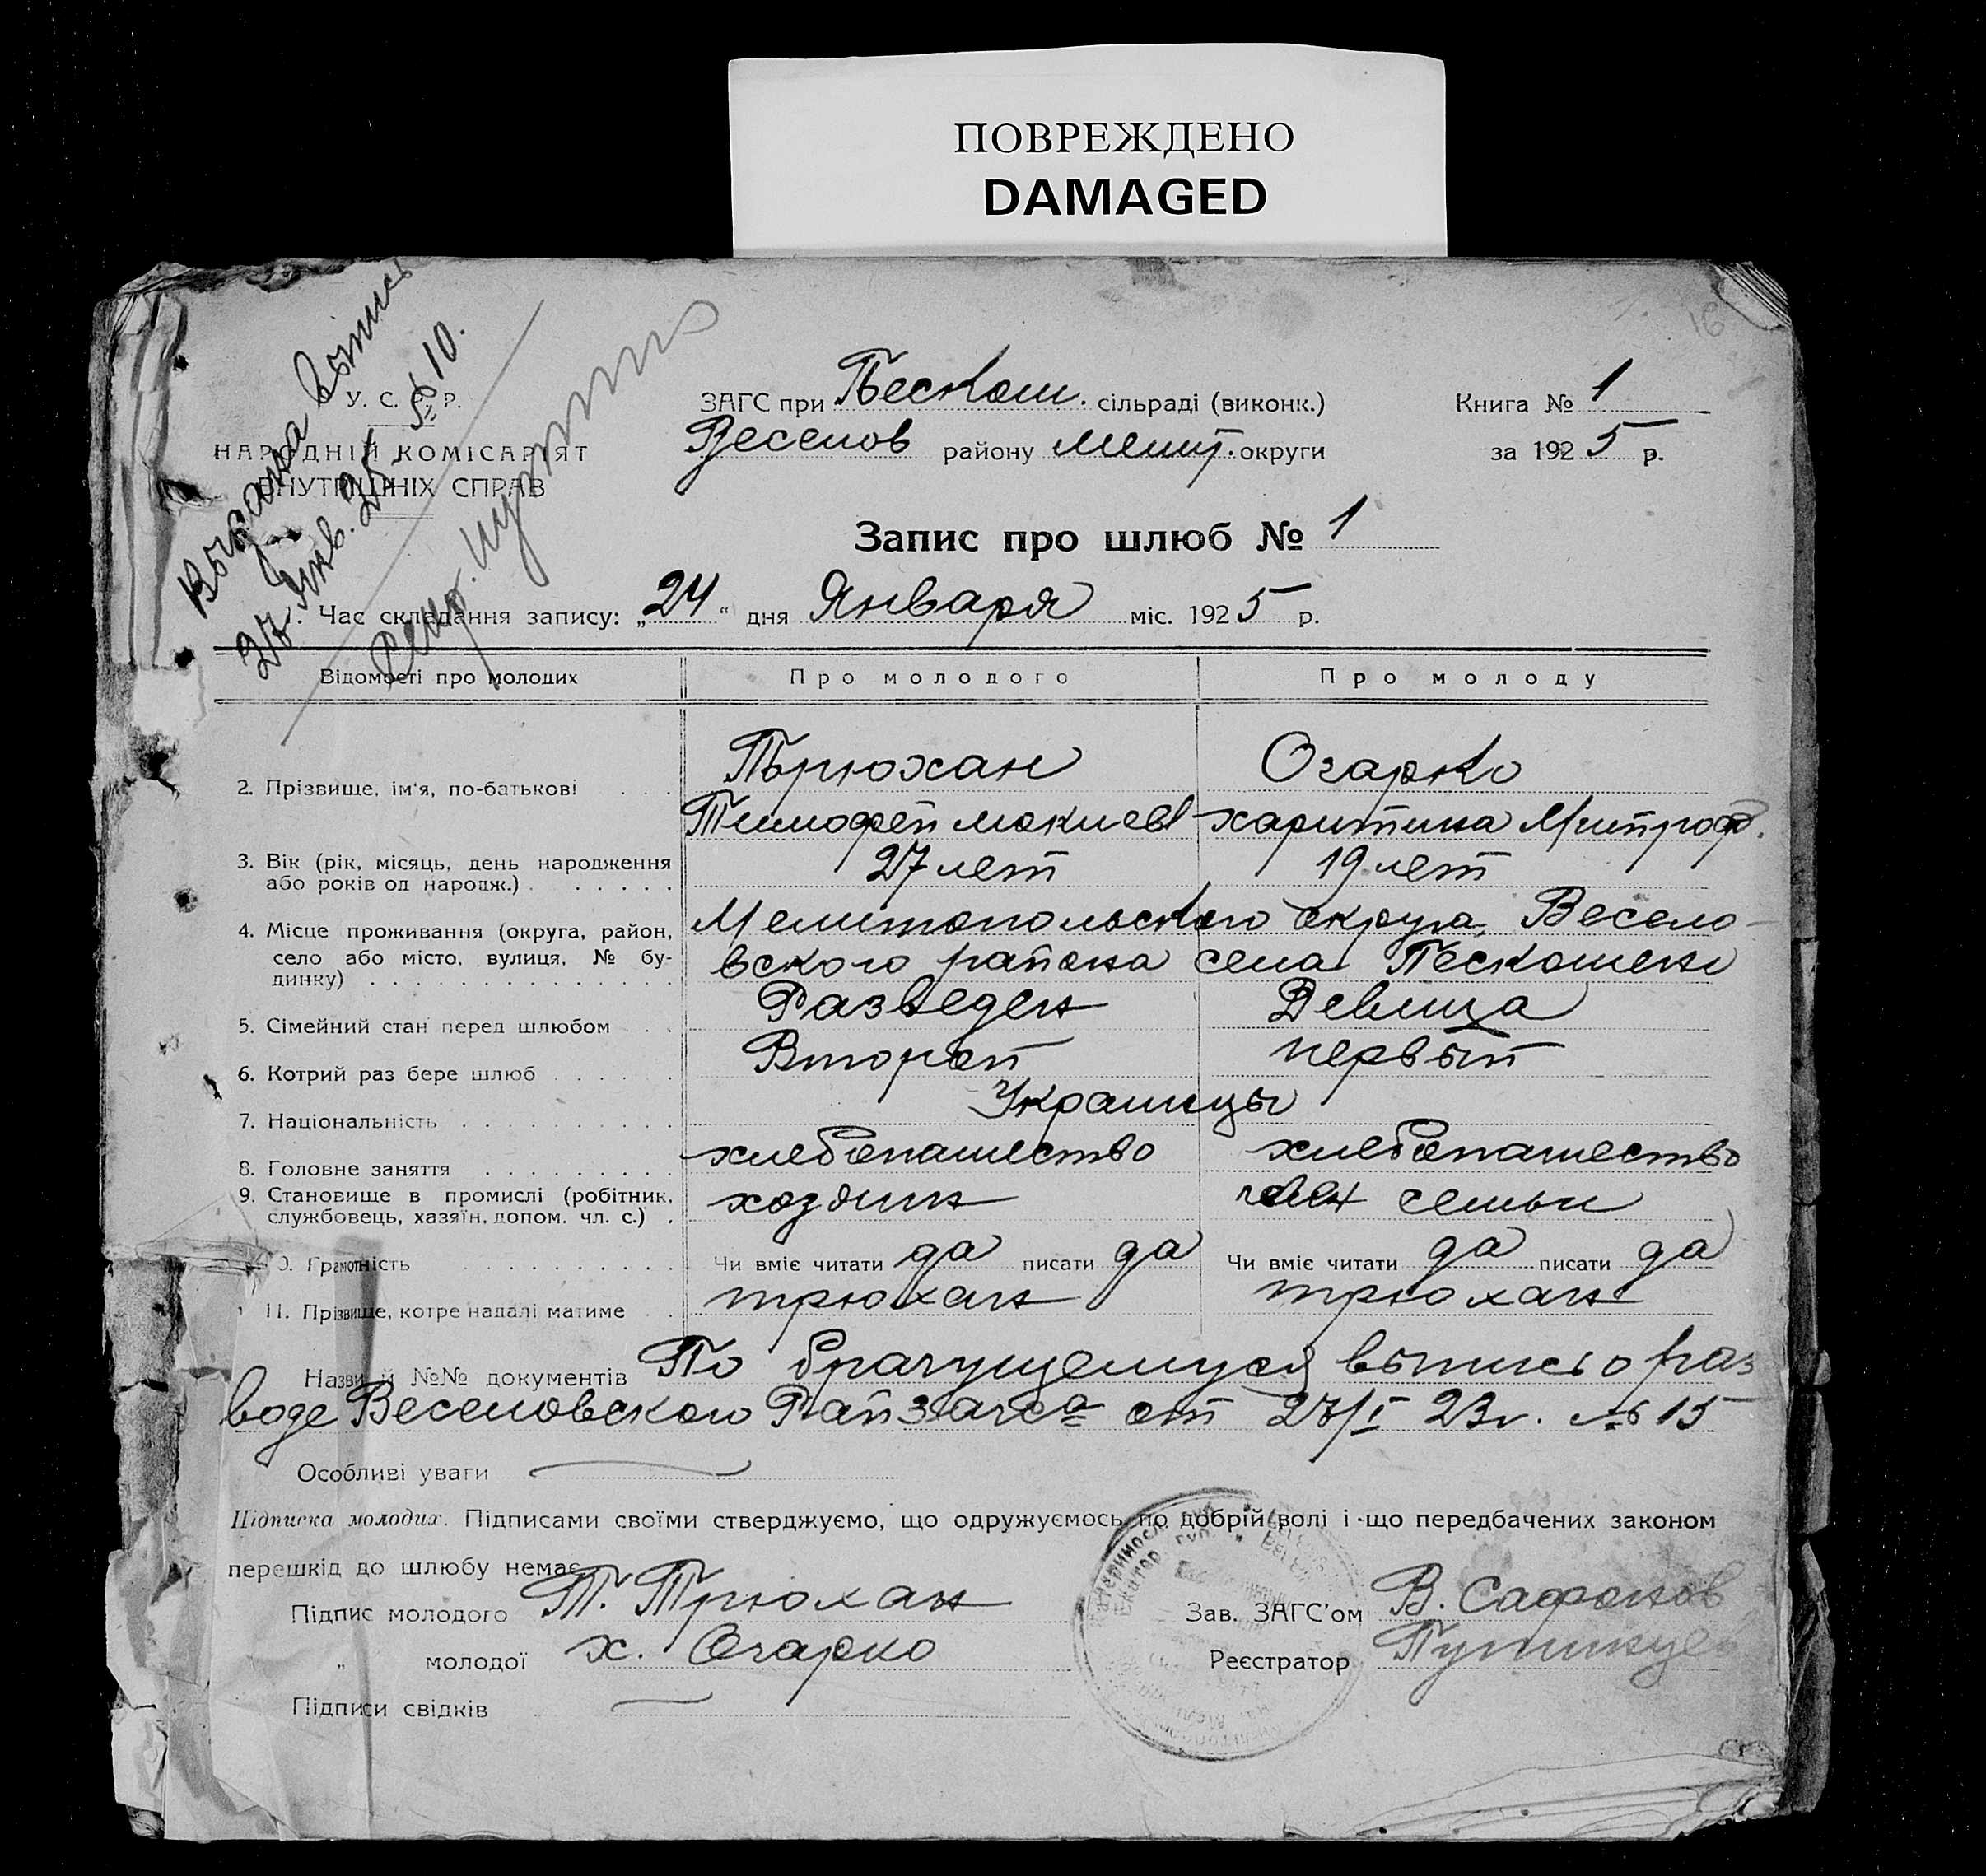 ПОВРЕЖДЕНО
DAMAGED
16
Выдана выпись
27 Янв. 25 № 10.
У. С. Р. Р.
НАРОДНІЙ КОМІСАРІЯТ
ВНУТРІШНІХ СПРАВ
ЗАГС при Пескош. сільраді (виконк.)
Веселов району Мелит. округи
Книга № 1
за 1925 р.
Запис про шлюб № 1
1. Час складання запису: „24“ дня Января міс. 1925 р.
Відомості про молодих Про молодого Про молоду
2. Прізвище, ім'я, по-батькові Трюхан Огарко
Тимофей Харитина Митроф.
3. Вік (рік, місяць, день народження або років од народж.) 27 лет 19 лет
4. Місце проживання (округа, район, село або місто, вулиця, № будинку) Мелитопольского округа, Весело-
вского района села Пескошено
5. Сімейний стан перед шлюбом Разведен Девица
6. Котрий раз бере шлюб Второй первый
7. Національність Украинцы
8. Головне заняття хлебопашество хлебопашество
9. Становище в промислі (робітник, службовець, хазяїн, допом. чл. с.) хозяин член семьи
10. Грамотність Чи вміє читати да писати да Чи вміє читати да писати да
11. Прізвище, котре надалі матиме трюхан трюхан
Назви й №№ документів По брачущемуся выпись о раз
воде Веселовского Райзагса от 27/I 23г. № 15
Особливі уваги
Підписка молодих. Підписами своїми стверджуємо, що одружуємось по добрій волі і що передбачених законом
перешкід до шлюбу немає
Підпис молодого Т. Трюхан
„ молодої Х. Огарко
Підписи свідків
Зав. ЗАГС'ом В. Сафонов
Реєстратор